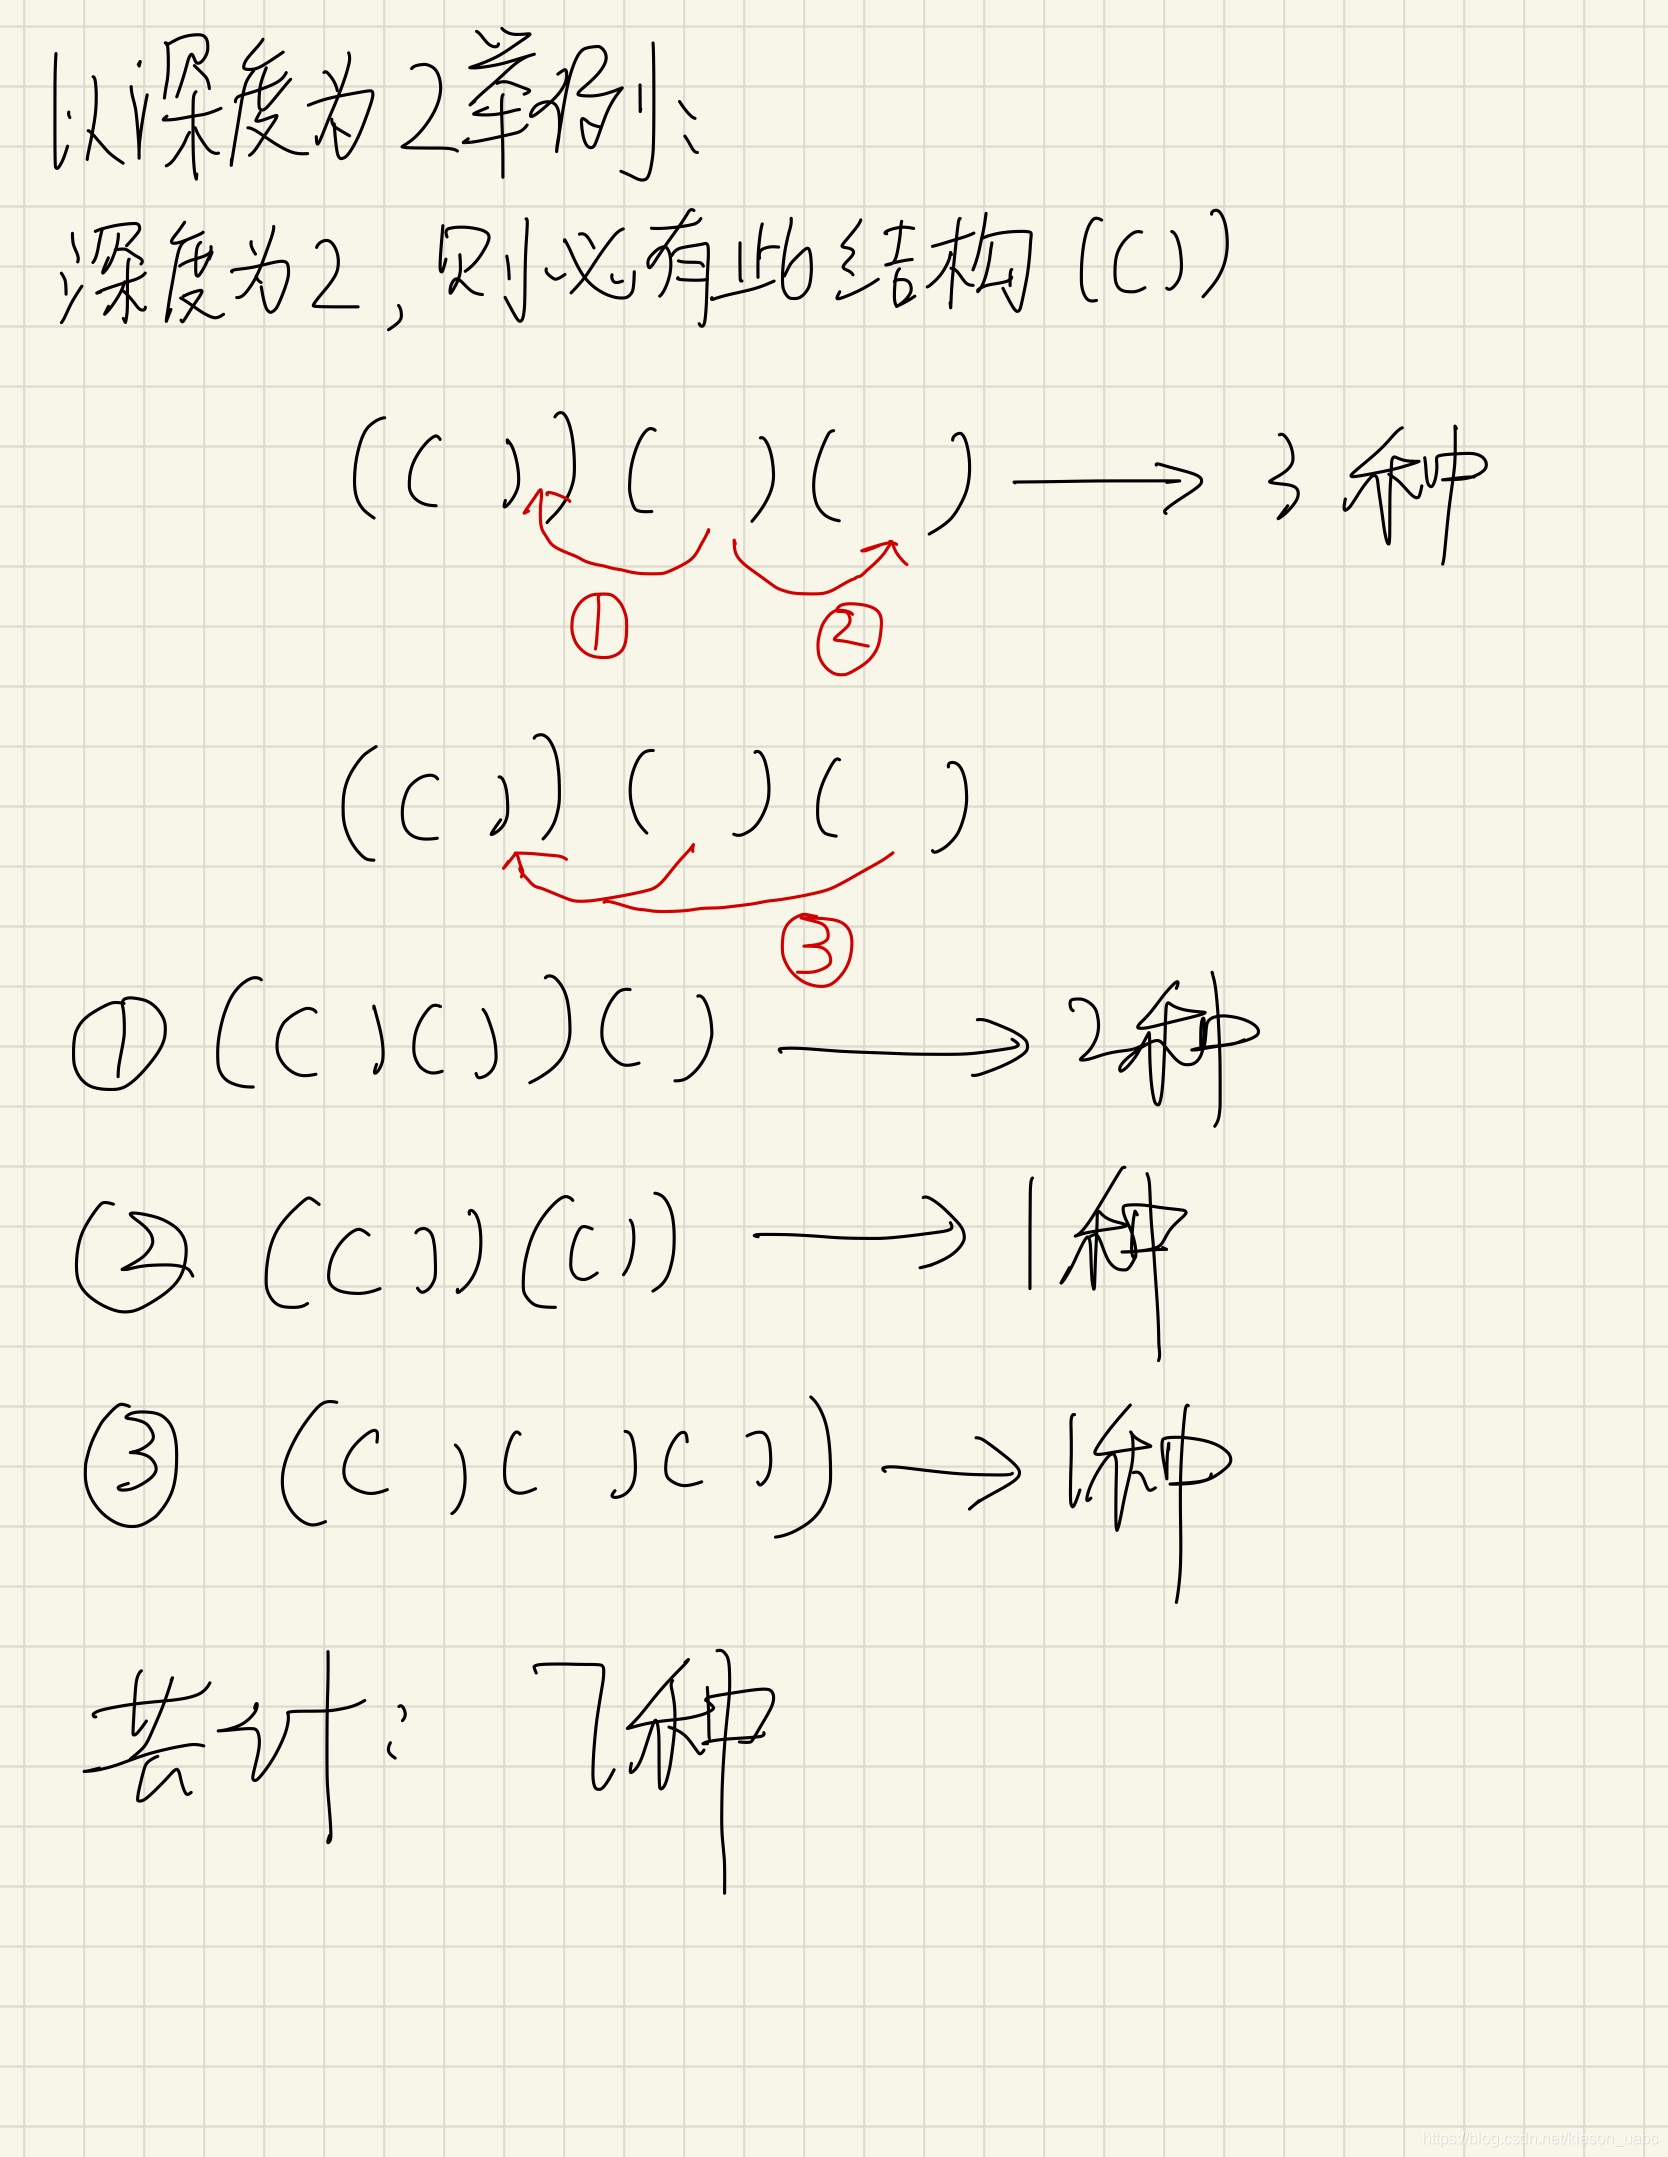 以深度为2举例:
深度为2,则必有此结构(())
(())()() → 3种
① ②
(())()()
③
① (()())() → 2种
② (())(()) → 1种
③ (()()()) → 1种
共计: 7种
https://blog.csdn.net/kieson_uabc